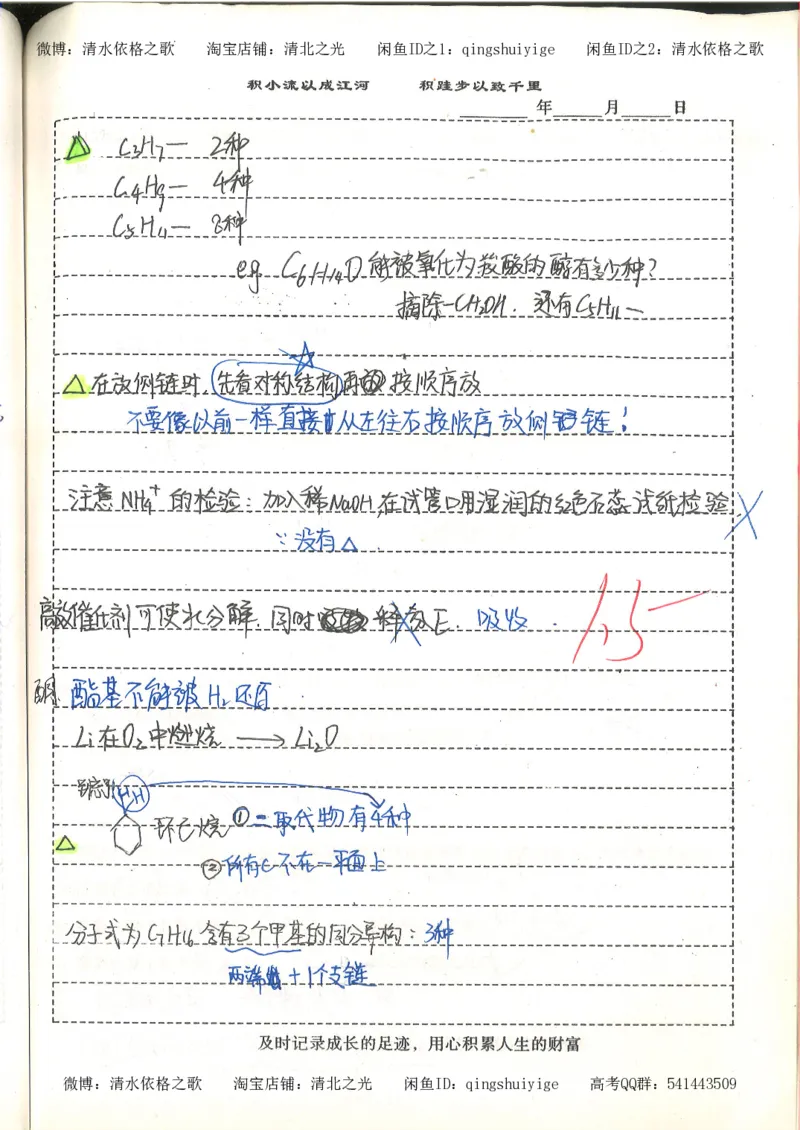 微博：清水依格之歌 淘宝店铺：清北之光 闲鱼ID之1：qingshuiyige 闲鱼ID之2：清水依格之歌
积小流以成江河 积跬步以致千里
年 月 日
C3H7— 2种
C4H9— 4种
C5H11— 8种
eg. C6H14O 能被氧化为羧酸的醇有多少种？
摘除—CH2OH. 还有C5H11—
△ 在放侧链时，先看对称结构再 按顺序放
不要像以前一样直接 从左往右按顺序放侧 链！
注意NH4+的检验：加入稀NaOH，在试管口用湿润的红色石蕊试纸检验 ×
∵没有△
高效催化剂可使水分解，同时 释 E. 吸收
1.5
酯基不能被H2还原
Li在O2中燃烧 → Li2O
H H
环己烷 ①二取代物有4种
△
②所有C不在一平面上
分子式为C7H16含有3个甲基的同分异构：3种
两端 +1个支链
及时记录成长的足迹，用心积累人生的财富
微博：清水依格之歌 淘宝店铺：清北之光 闲鱼ID：qingshuiyige 高考QQ群：541443509